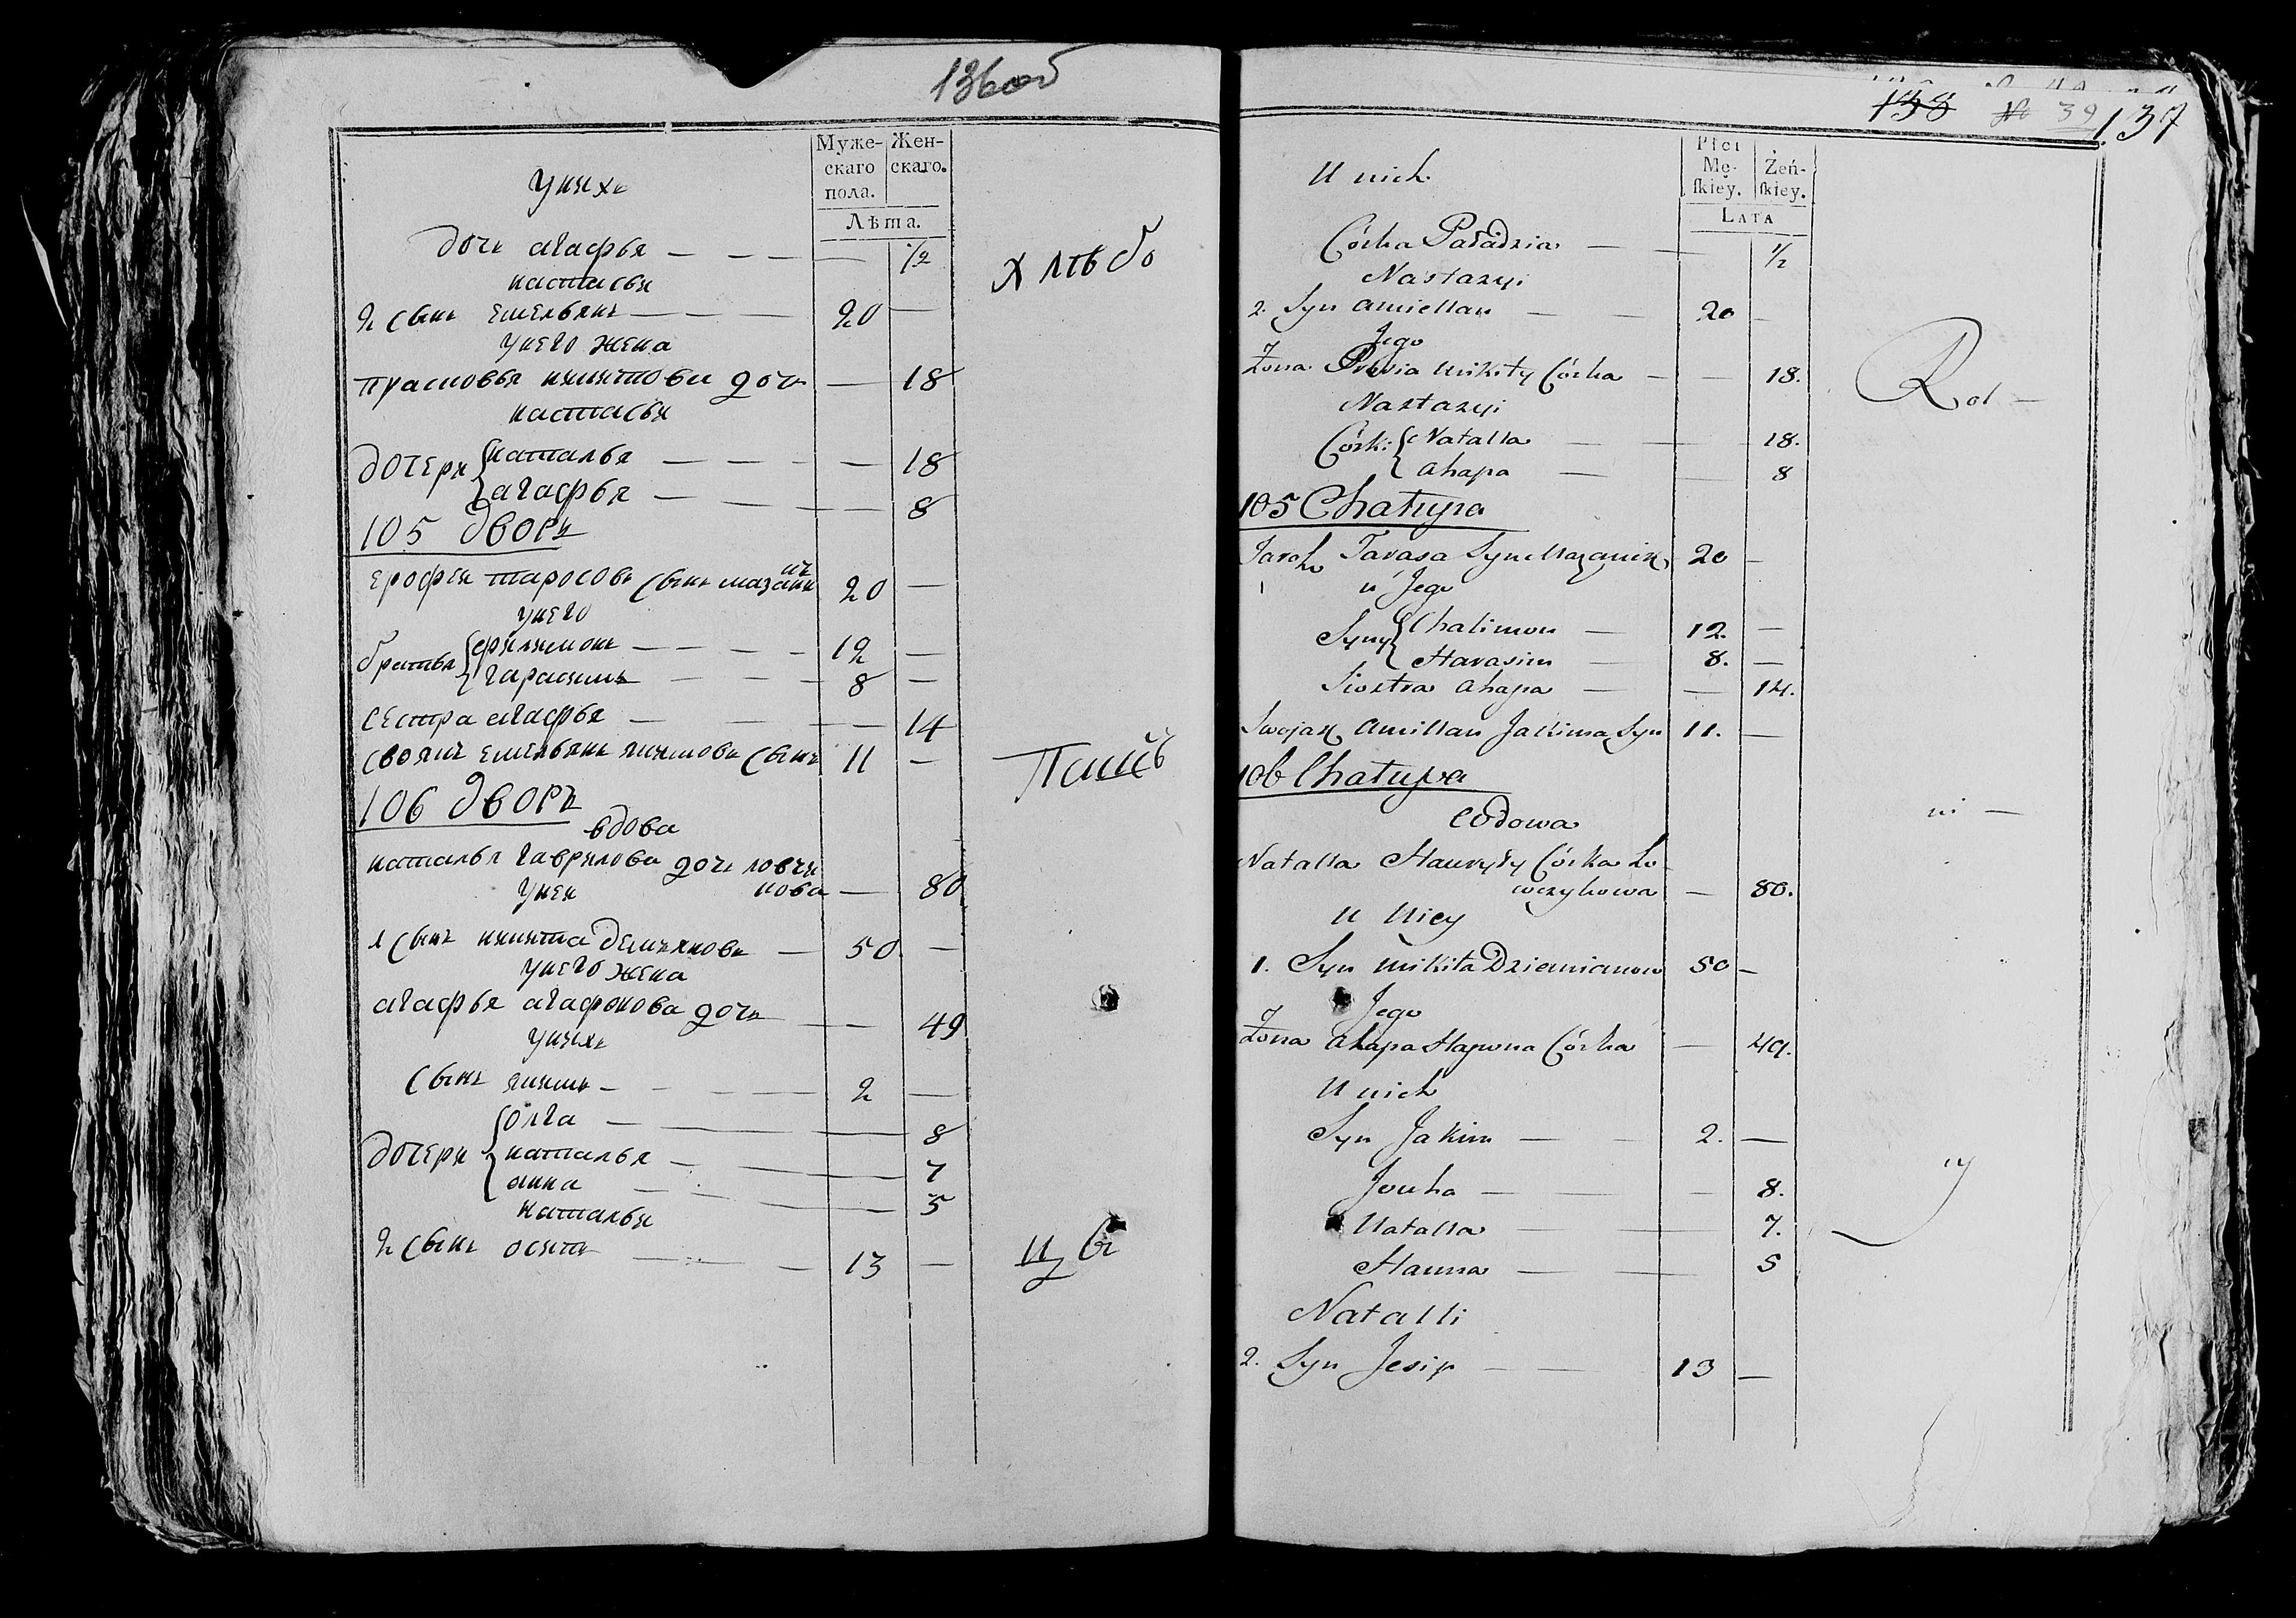 136об
Муже-
скаго
пола.
Жен-
скаго.
Лѣта.
Унихъ
дочь агафья — — — — 1/2
настасьи
2 сынъ емельянъ — — — 20 —
унего жена
прасковья никитова дочь — 18
настасьи
дочери { наталья — — — — — 18
агафья — — — — 8
105 дворъ
ерофей тарасовъ сынъ мазаникъ 20 —
унего
братья { филимонъ — — — — 12 —
гарасимъ — — — 8 —
сестра агафья — — — — 14
своякъ емельянъ якимовъ сынъ 11 —
106 дворъ
вдова
наталья гаврилова дочь ловчи
кова — 80
унеи
1 сынъ никита демьяновъ — 50 —
унего жена
агафья агафонова дочь — — 49
унихъ
сынъ якимъ — — — — 2 —
дочери { олга — — — 8
наталья — — — 7
анна — — — 5
натальи
2 сынъ осипъ — — — 13 —
хлѣбо
Паш
138 № 39 137
Płci
Mę-
skiey.
Żeń-
skiey.
LATA
U nich
Córka Paładzia — — 1/2
Nastazyi
2. Syn Amiellan — — 20 —
Jego
Żona Prosia Mikity Córka — — 18.
Nastazyi
Córki { Natalla — — — 18.
Ahapa — — 8
105 Chałupa
Jaroch Tarasa Syn Mazanik 20 —
u Jego
Syny { Chalimon — 12. —
Harasim — 8. —
Siostra Ahapa — — 14.
Swojak Amillan Jakima Syn 11. —
106 Chałupa
Wdowa
Natalla Hauryły Córka Ło
wczykowa — 80.
U Niey
1. Syn Mikita Dziemianow 50 —
Jego
Żona Ahapa Hapona Córka — 49.
U nich
Syn Jakim — — 2. —
Jouha — — — 8.
Natalla — — 7.
Hanna — — 5
Natalli
2. Syn Jesip — — 13 —
Rol —
ni —
cy